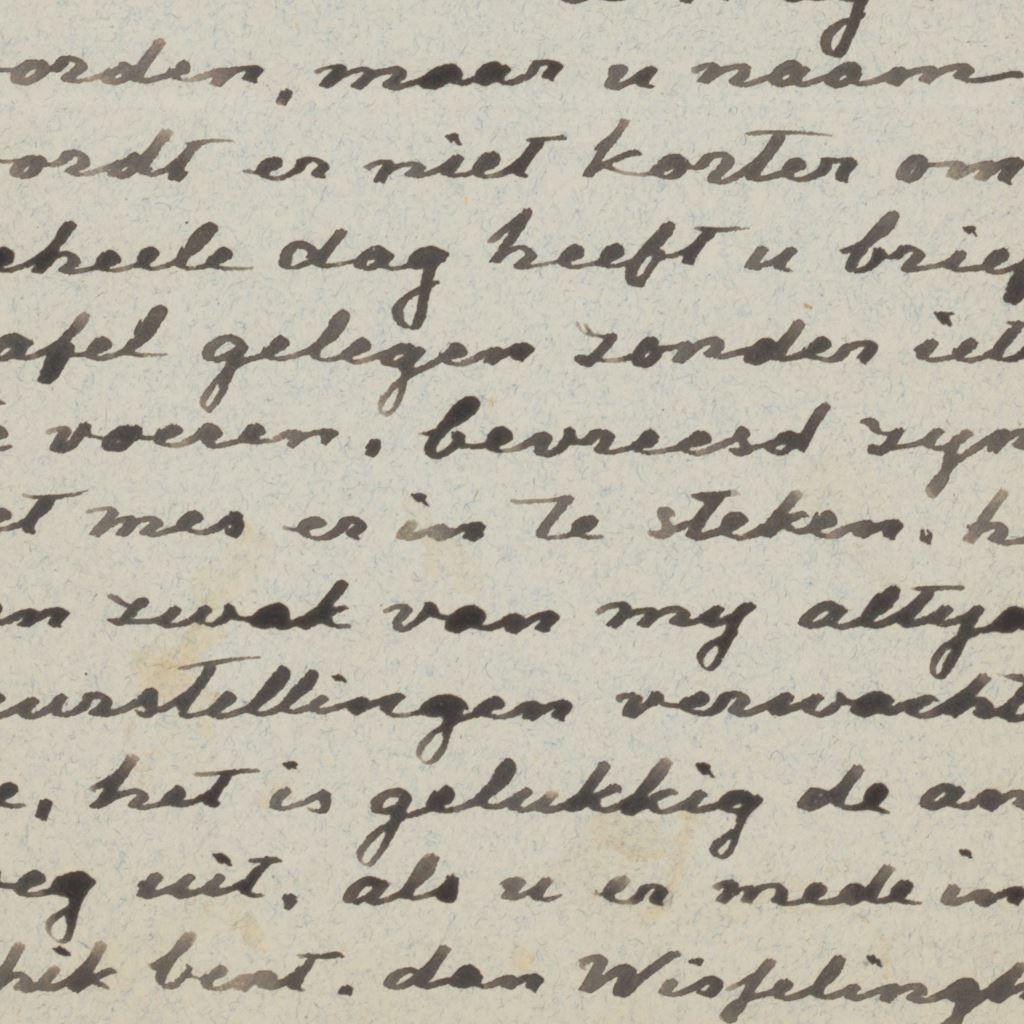 orden, maar u naam
ordt er niet korter om
eheele dag heeft u brief
afel gelegen zonder iet
e voeren. bevreesd zyn
et mes er in te steken. h
en zwak van my altyd
eurstellingen verwacht
e, het is gelukkig de an
oeg uit. als u er mede in
hik bent. dan Wisselingh